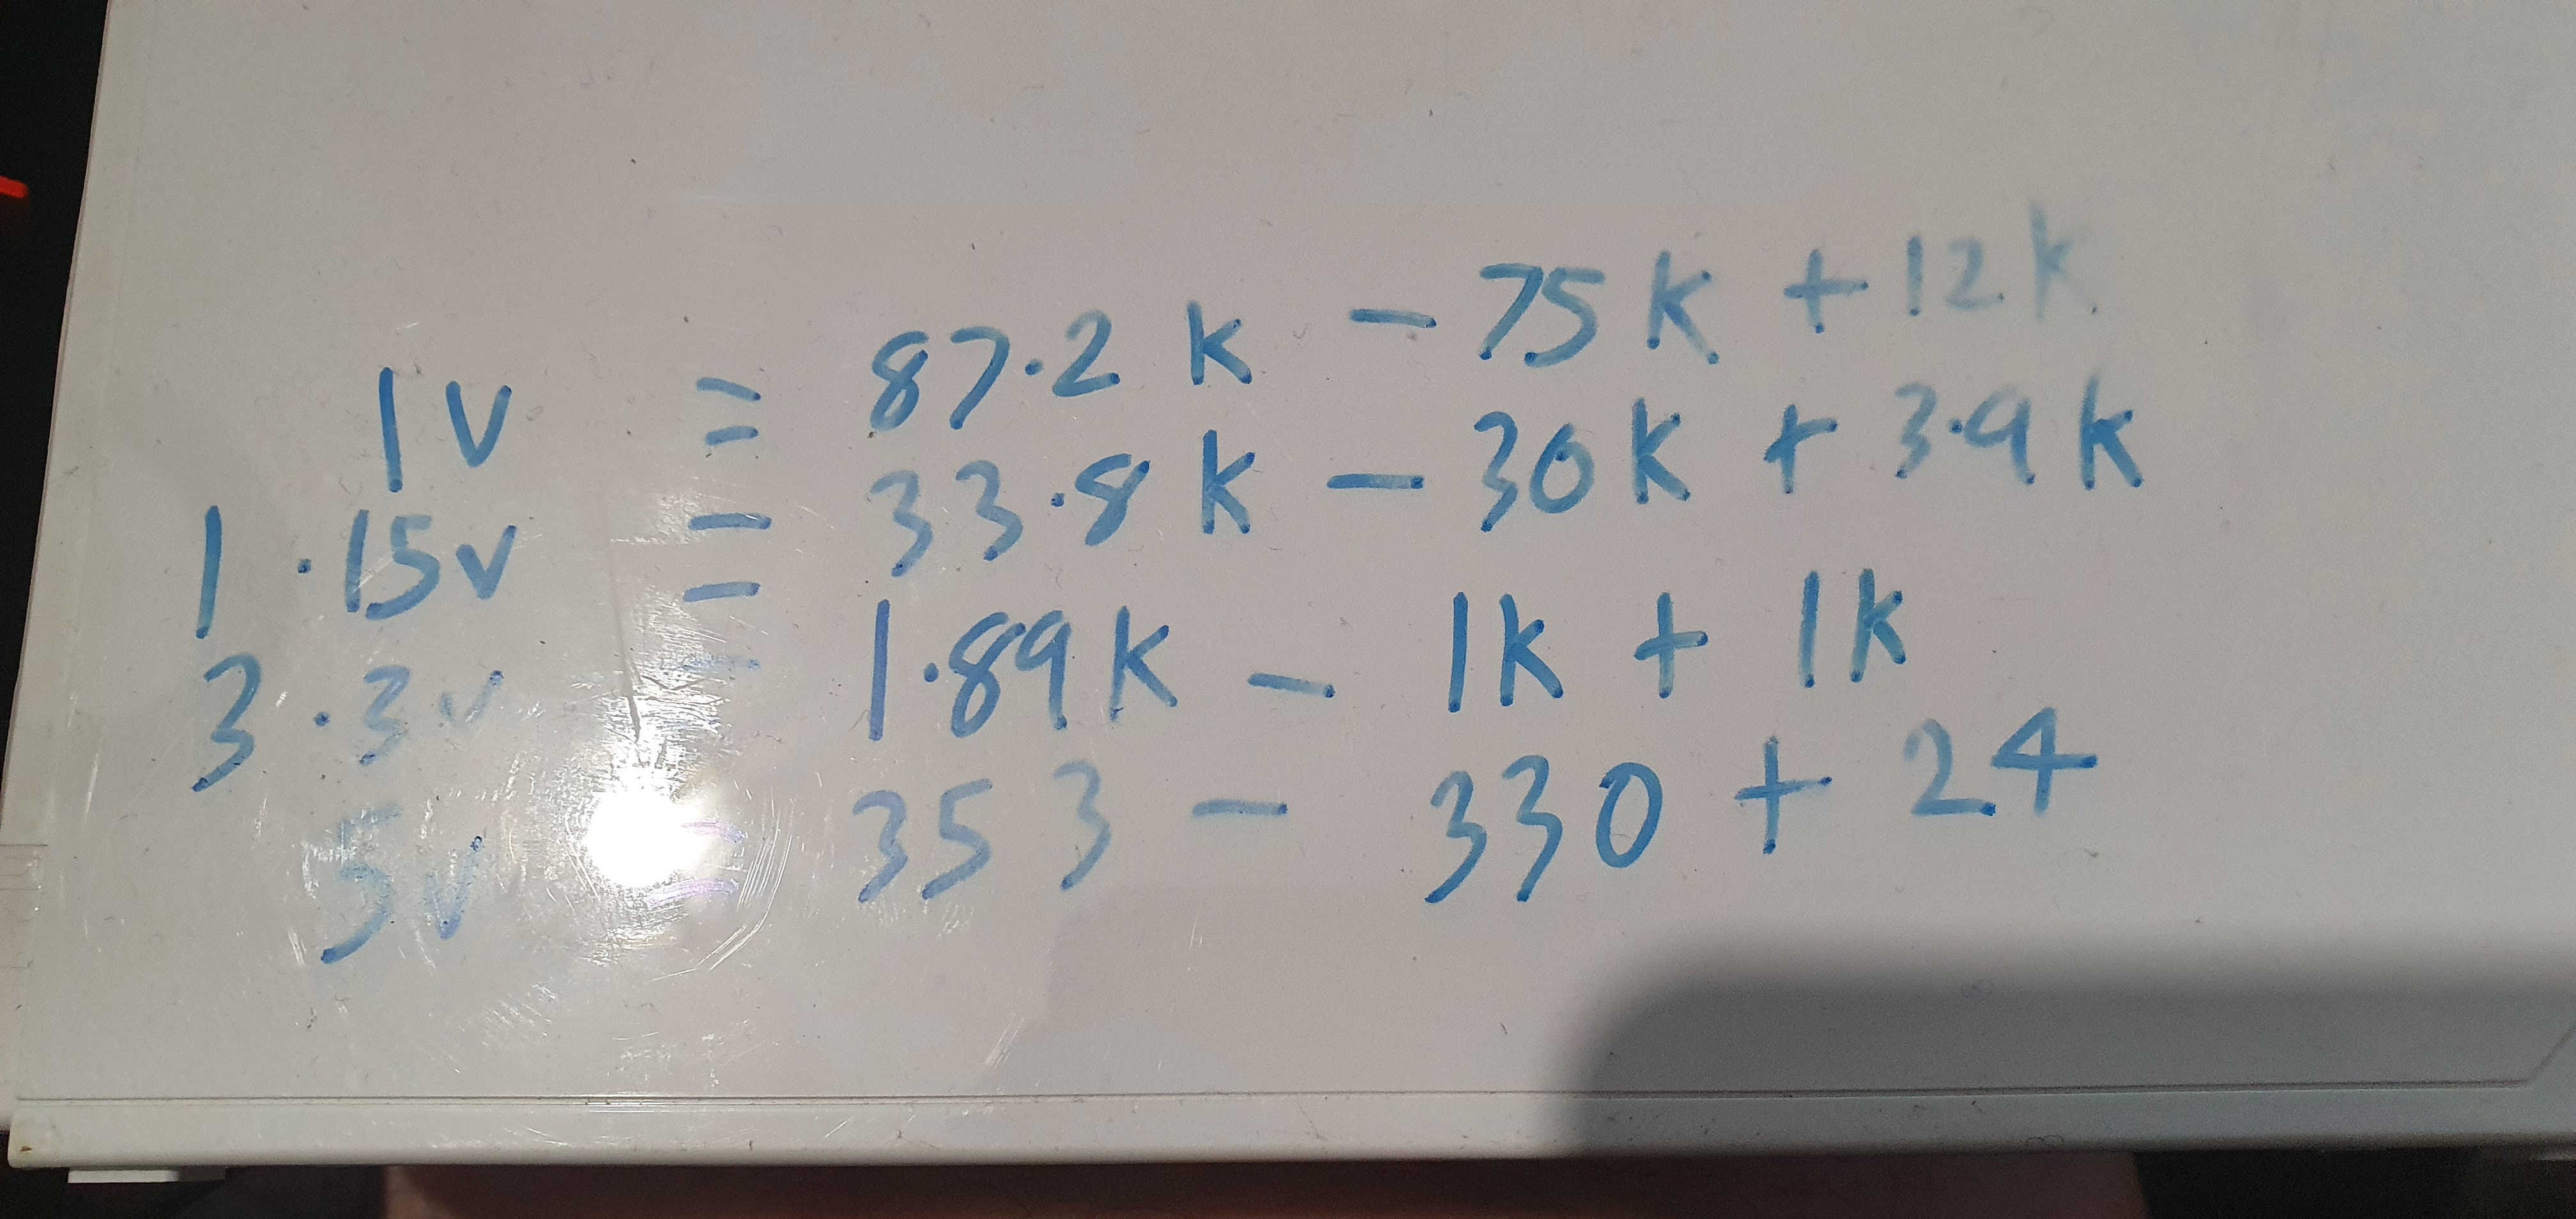 1v = 87.2k - 75k + 12k
1.15v = 33.8k - 30k + 3.9k
3.3v = 1.89k - 1k + 1k
5v = 353 - 330 + 24